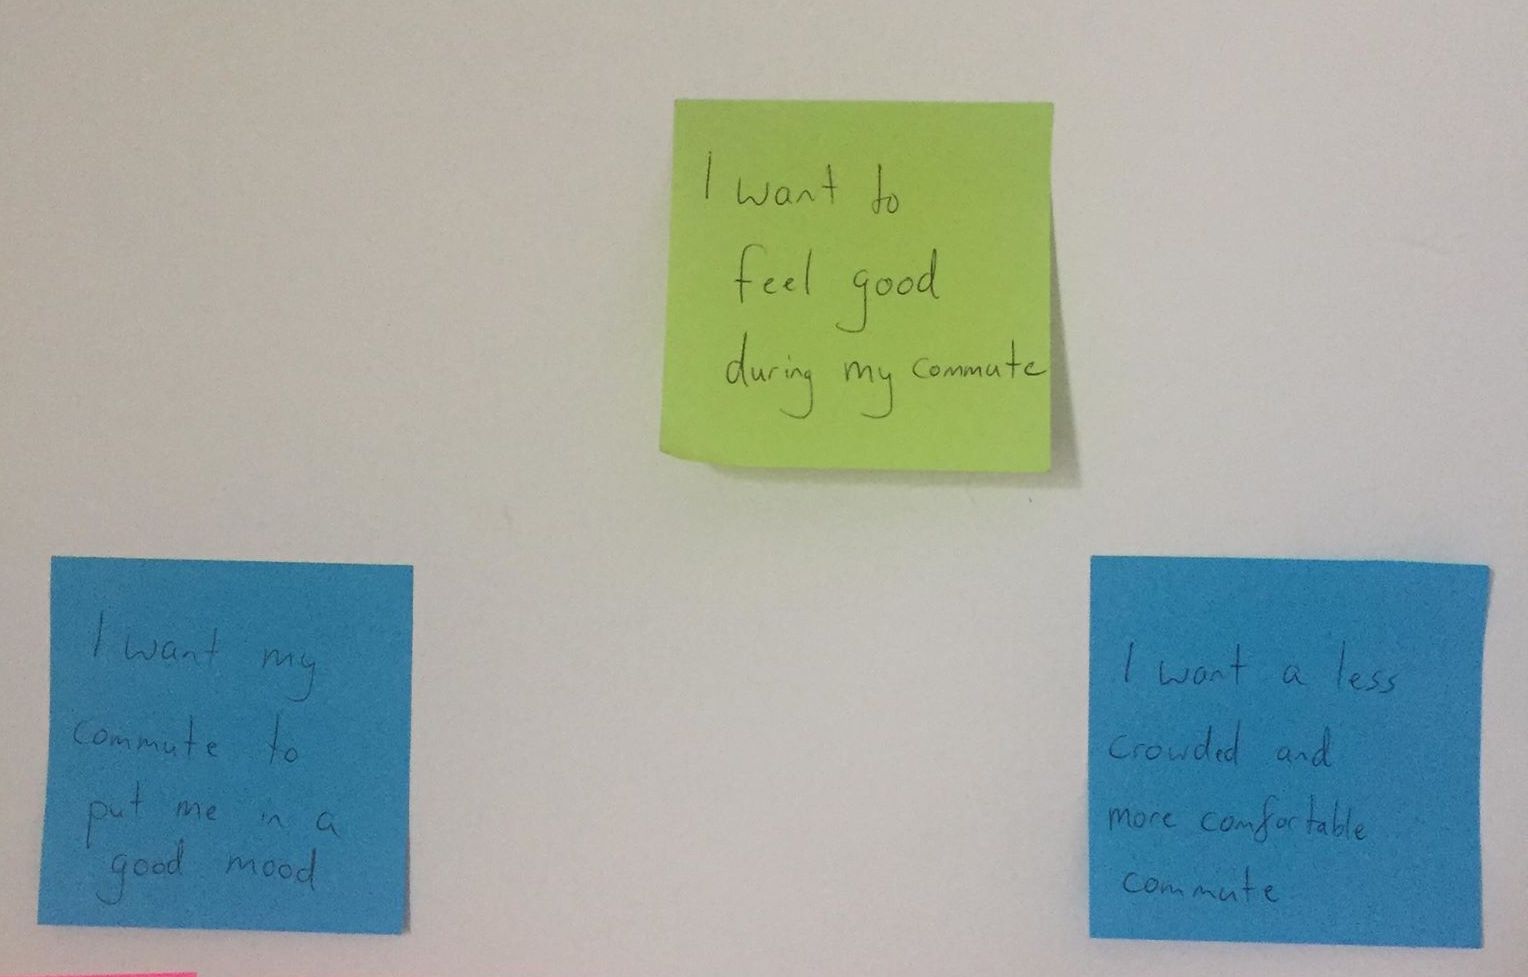 I want to
feel good
during my commute
I want my
commute to
put me in a
good mood
I want a less
crowded and
more comfortable
commute